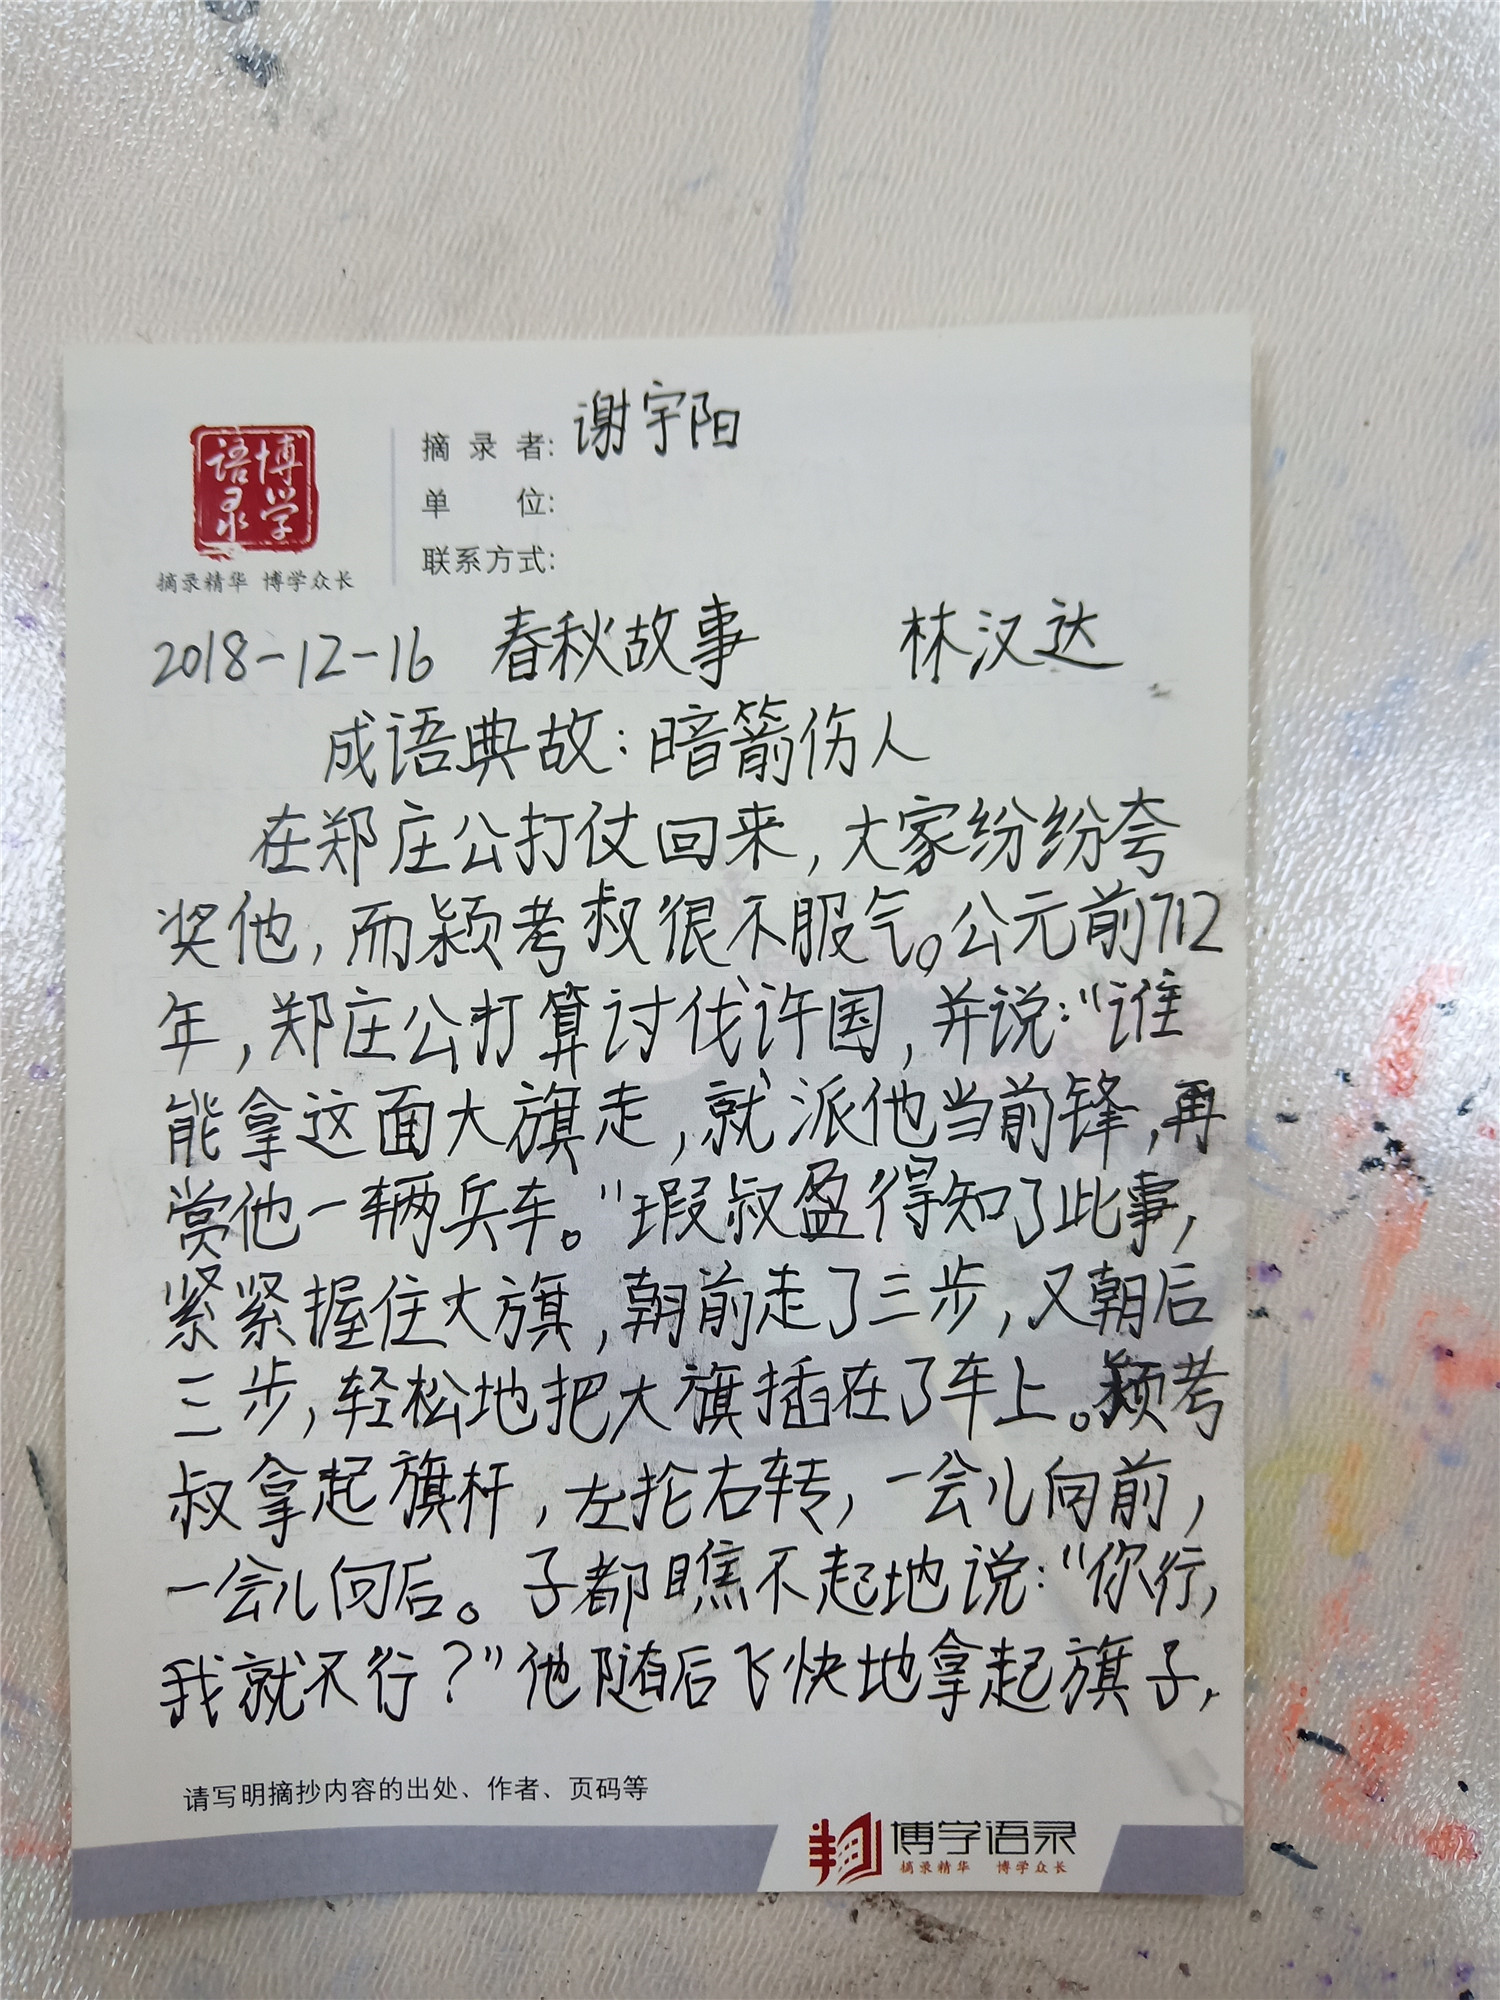 博学语录
摘录精华 博学众长
摘录者: 谢宇阳
单位:
联系方式:
2018-12-16 春秋故事 林汉达
成语典故:暗箭伤人
在郑庄公打仗回来,大家纷纷夸
奖他,而颍考叔很不服气。公元前712
年,郑庄公打算讨伐许国,并说:“谁
能拿这面大旗走,就派他当前锋,再
赏他一辆兵车。”瑕叔盈得知了此事,
紧紧握住大旗,朝前走了三步,又朝后
三步,轻松地把大旗插在了车上。颍考
叔拿起旗杆,左抡右转,一会儿向前,
一会儿向后。子都瞧不起地说:“你行,
我就不行?”他随后飞快地拿起旗子,
请写明摘抄内容的出处、作者、页码等
博学语录
摘录精华 博学众长